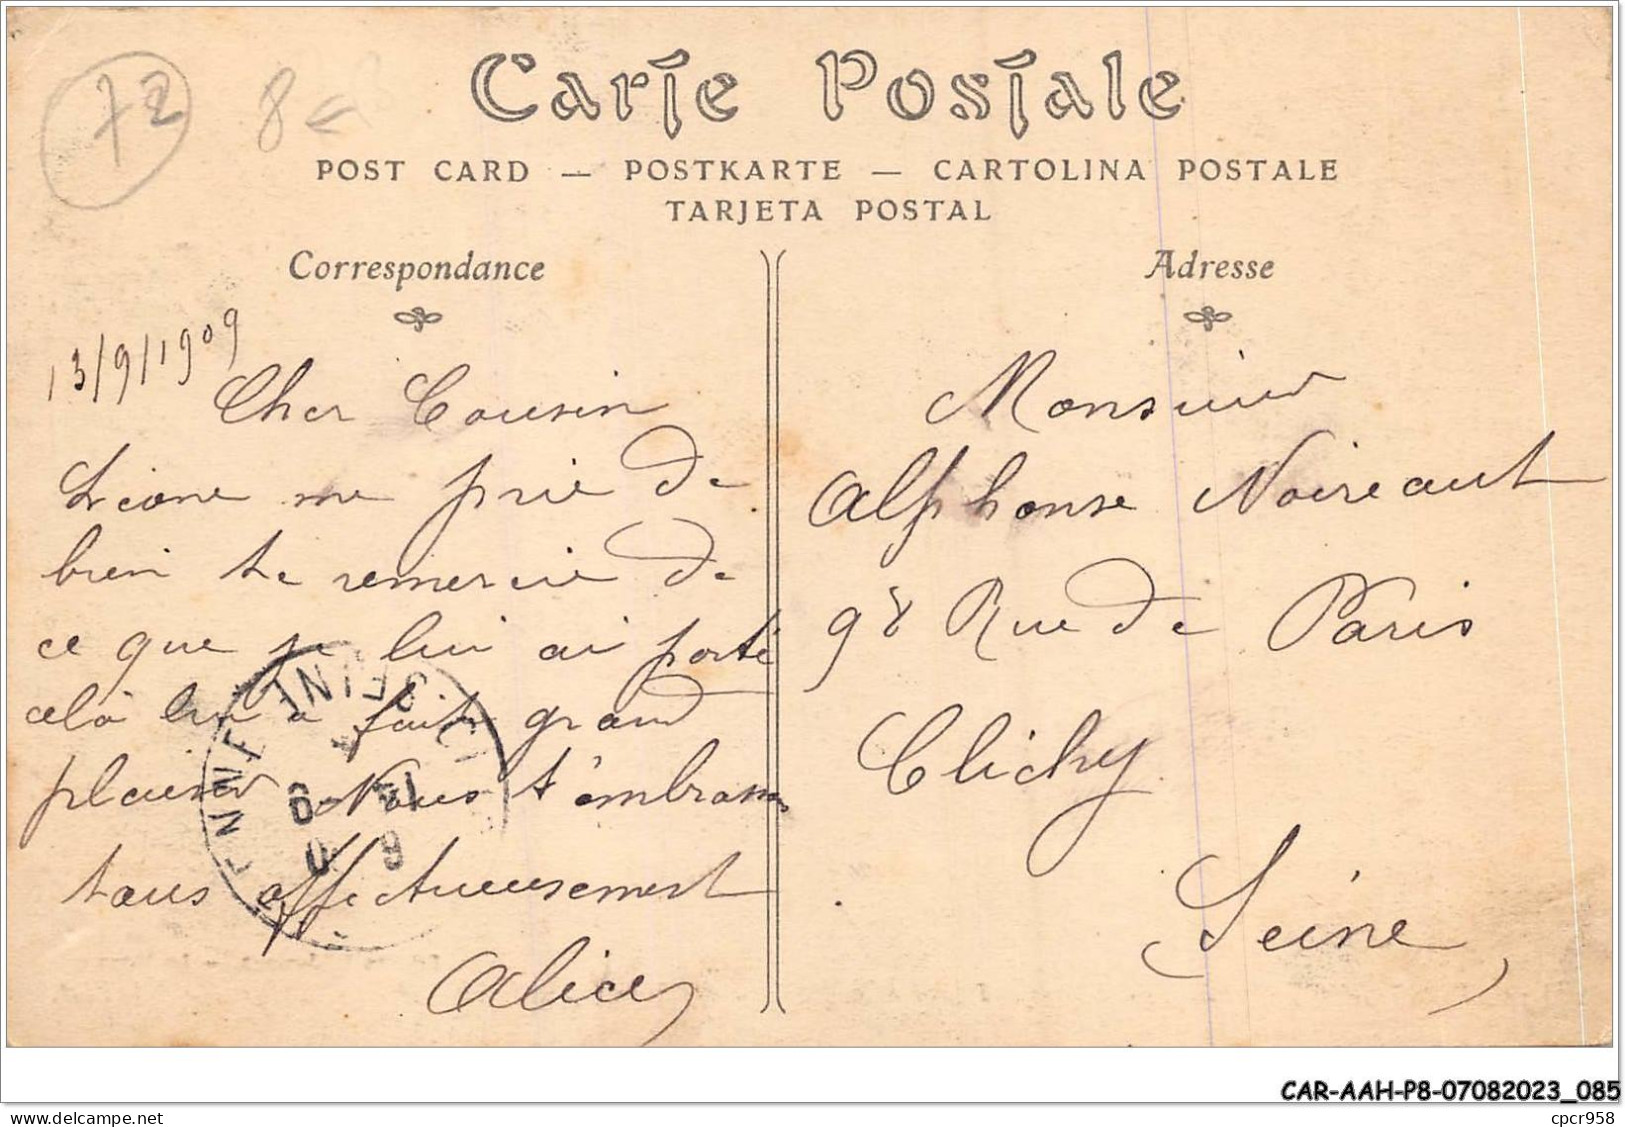 72 8
Carte Postale
POST CARD — POSTKARTE — CARTOLINA POSTALE
TARJETA POSTAL
Correspondance
13/9/1909
Cher Cousin
Léone me prie de
bien te remercie de
ce que je lui ai porté
celà lui a fait grand
plaisir Nous t'embrassons
tous affectueusement
Alice
Adresse
Monsieur
Alphonse Noireault
98 Rue de Paris
Clichy
Seine
CAR-AAH-P8-07082023_085
cpcr958